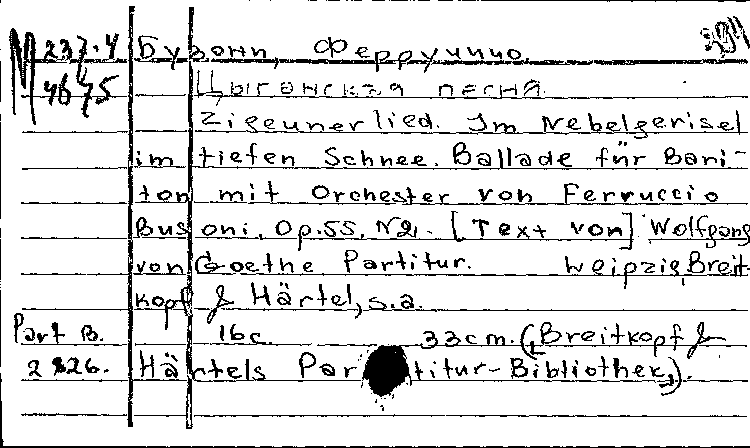 М 237.4 Бузони, Ферруччио. 394
4675 Цыганская песня.
Zigeunerlied. Im Nebelgerisel
im tiefen Schnee. Ballade für Bari-
ton mit Orchester von Ferruccio
Busoni. Op.55, N2. [Text von] Wolfgang
von Goethe Partitur. Leipzig, Breit-
kopf & Härtel, s.a.
Part B. 16c. 33cm. (Breitkopf &
2826. Härtels Partitur-Bibliothek).